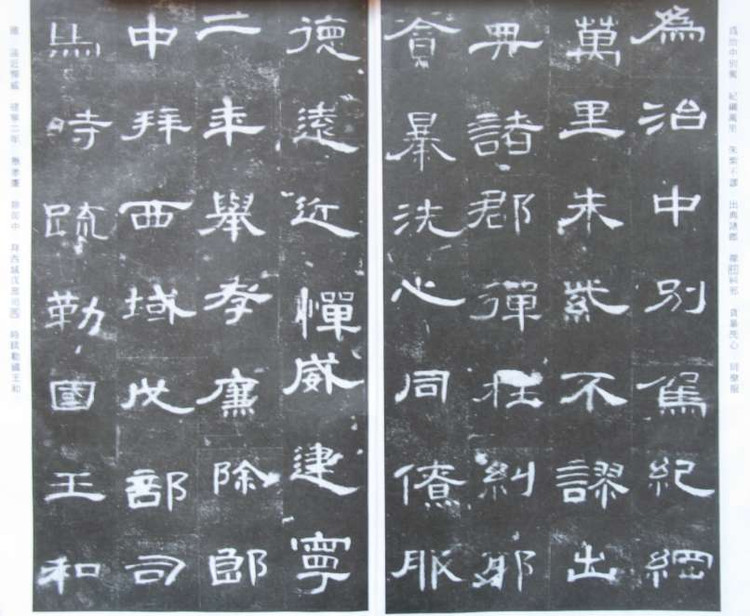 爲治中別駕 紀綱萬里 朱紫不謬 出典諸郡 彈枉糾邪 貪暴洗心 同僚服
為治中別駕紀綱
萬里朱紫不謬出
典諸郡彈枉糾邪
貪暴洗心同僚服
德遠近憚威建寧
二年舉孝廉除郎
中拜西域戊部司
馬時疏勒國王和
德 遠近憚威 建寧二年 舉孝廉 除郎中 拜西域戊部司馬 時疏勒國王和